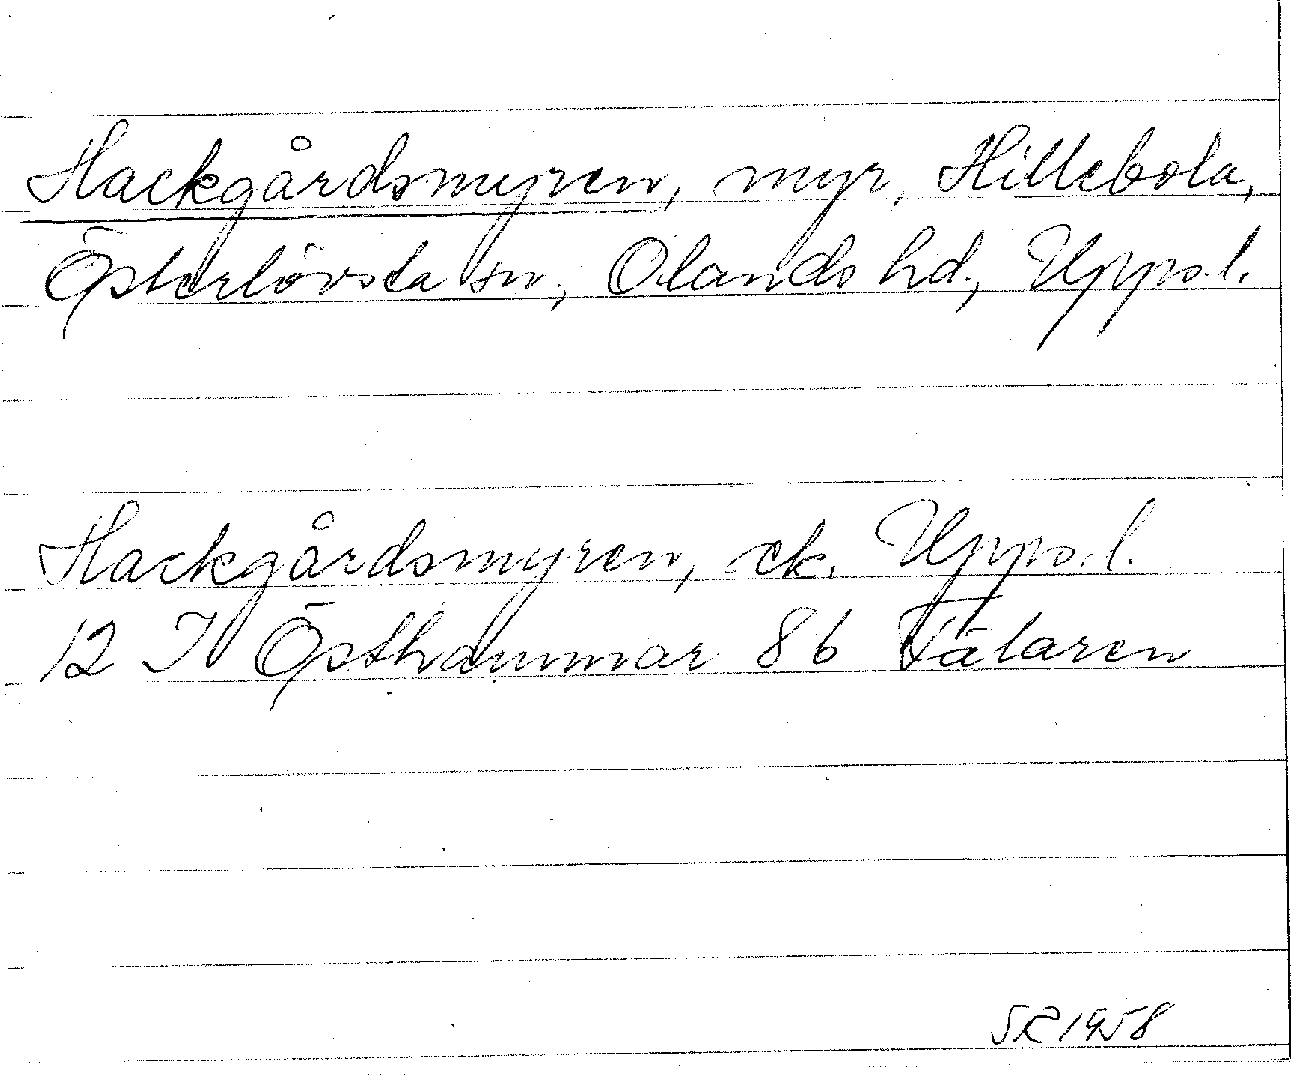 Hackgårdsmyren, myr, Hillebola,
Österlövsta sn, Olands hd, Upps. l.
Hackgårdsmyren, ek. Upps. l.
12 I Östhammar 8b Välaren
SR 1958